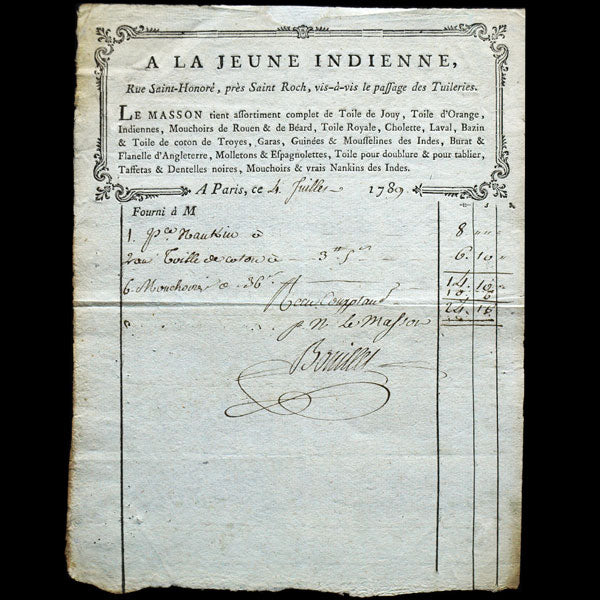 A LA JEUNE INDIENNE,
Rue Saint-Honoré, près Saint Roch, vis-à-vis le passage des Tuileries.
LE MASSON tient assortiment complet de Toile de Jouy, Toile d'Orange,
Indiennes, Mouchoirs de Rouen & de Béard, Toile Royale, Cholette, Laval, Bazin
& Toile de coton de Troyes, Garas, Guinées & Mousselines des Indes, Burat &
Flanelle d'Angleterre, Molletons & Espagnolettes, Toile pour doublure & pour tablier,
Taffetas & Dentelles noires, Mouchoirs & vrais Nankins des Indes.
A Paris, ce 4 Juillet 1789
Fourni à M
1. pce Nankin à 8
2 au Toille de coton à 3tt 5s 6. 10
14. 10
6. Mouchoirs à 36s 10
24. 16
Recu Comptant
p. Mr Le Masson
Bouillet